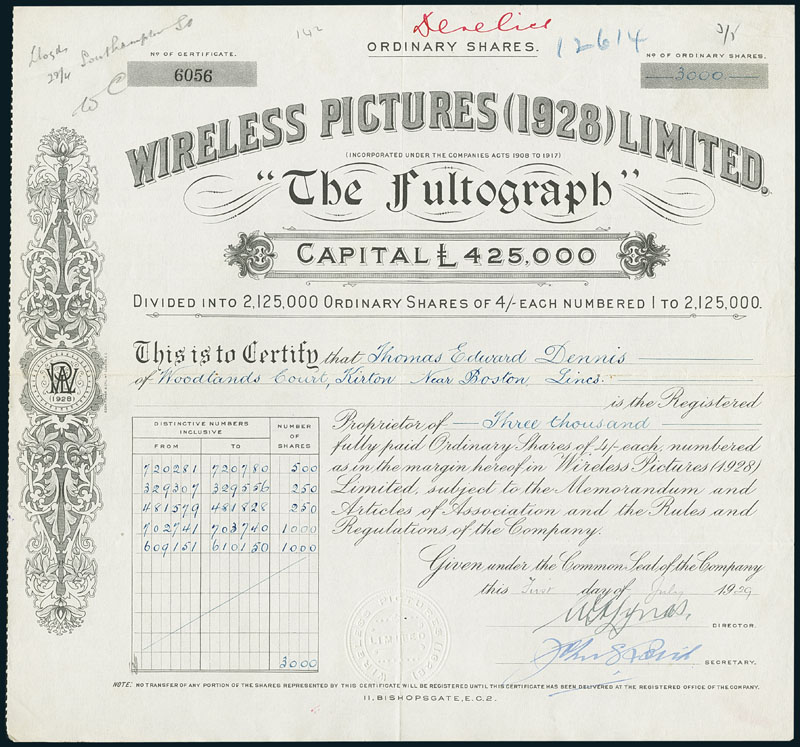 Derelict
ORDINARY SHARES.
12614
142
3/5
Lloyds
Southampton St
29/4
W C
Nº OF CERTIFICATE.
6056
Nº OF ORDINARY SHARES.
3000
WIRELESS PICTURES (1928) LIMITED.
(INCORPORATED UNDER THE COMPANIES ACTS 1908 TO 1917)
"The Fultograph"
CAPITAL £425,000
DIVIDED INTO 2,125,000 ORDINARY SHARES OF 4/- EACH NUMBERED 1 TO 2,125,000.
This is to Certify that Thomas Edward Dennis
of Woodlands Court, Kirton Near Boston Lincs.
is the Registered
Proprietor of Three thousand
fully paid Ordinary Shares of 4/- each, numbered
as in the margin hereof in Wireless Pictures (1928)
Limited, subject to the Memorandum and
Articles of Association and the Rules and
Regulations of the Company.
DISTINCTIVE NUMBERS INCLUSIVE
NUMBER OF SHARES
FROM TO
720281 720780 500
329307 329556 250
481579 481828 250
702741 703740 1000
609151 610150 1000
3000
Given under the Common Seal of the Company
this First day of July 1929
DIRECTOR.
SECRETARY.
WIRELESS PICTURES (1928)
LIMITED
(1928)
NOTE: NO TRANSFER OF ANY PORTION OF THE SHARES REPRESENTED BY THIS CERTIFICATE WILL BE REGISTERED UNTIL THIS CERTIFICATE HAS BEEN DELIVERED AT THE REGISTERED OFFICE OF THE COMPANY.
11, BISHOPSGATE, E.C.2.